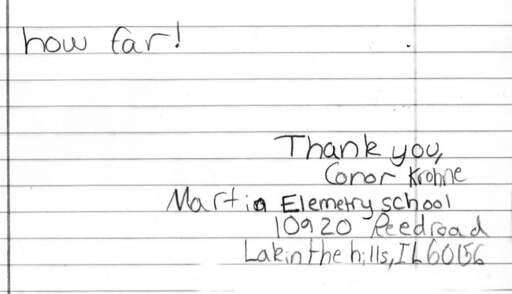 how far!
Thank you,
Conor Krohne
Martin Elemetry school
10920 Reed road
Lake in the hills, IL 60156